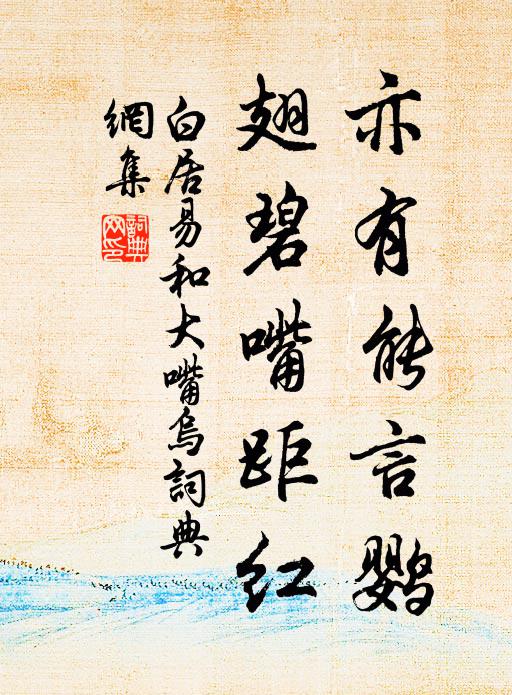 亦有能言鹦
翅碧嘴距红
白居易和大嘴乌词典
網集
詞典網印